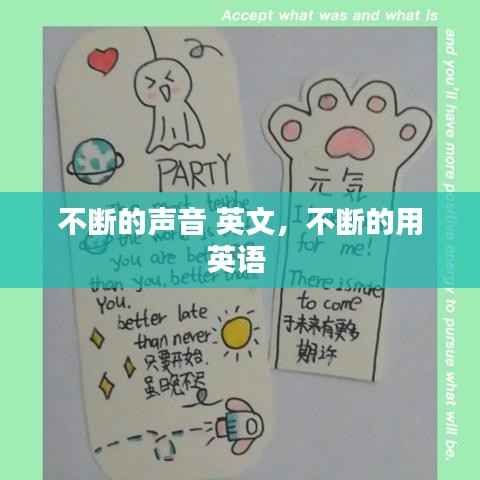 Accept what was and what is
and you'll have more positive energy to pursue what will be.
PARTY
you are bet
than you, better tha
You.
better late
than never
只要开始,
虽晚不迟
元气
for me!
There is more
to come
于未来有更多
期许
不断的声音 英文，不断的用
英语